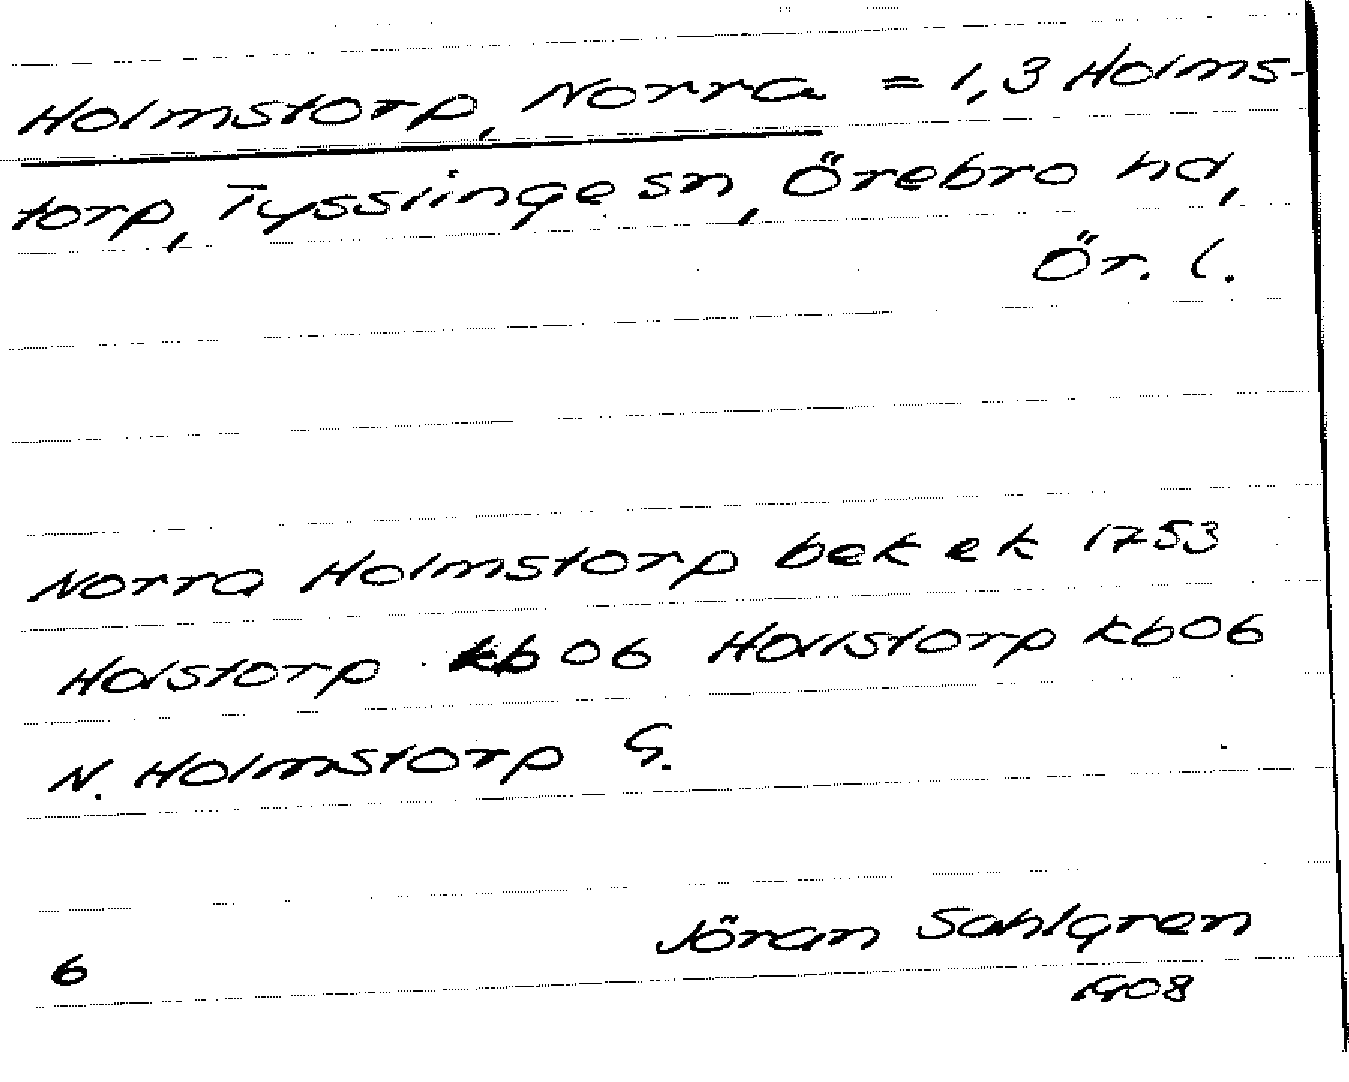 Holmstorp, Norra = 1,3 Holms-
torp, Tysslinge sn, Örebro hd,
Ör. l.
Norra Holmstorp bek ek 1753
Holstorp kb 06 Hollstorp kb 06
N. Holmstorp G.
Jöran Sahlgren
6
1908